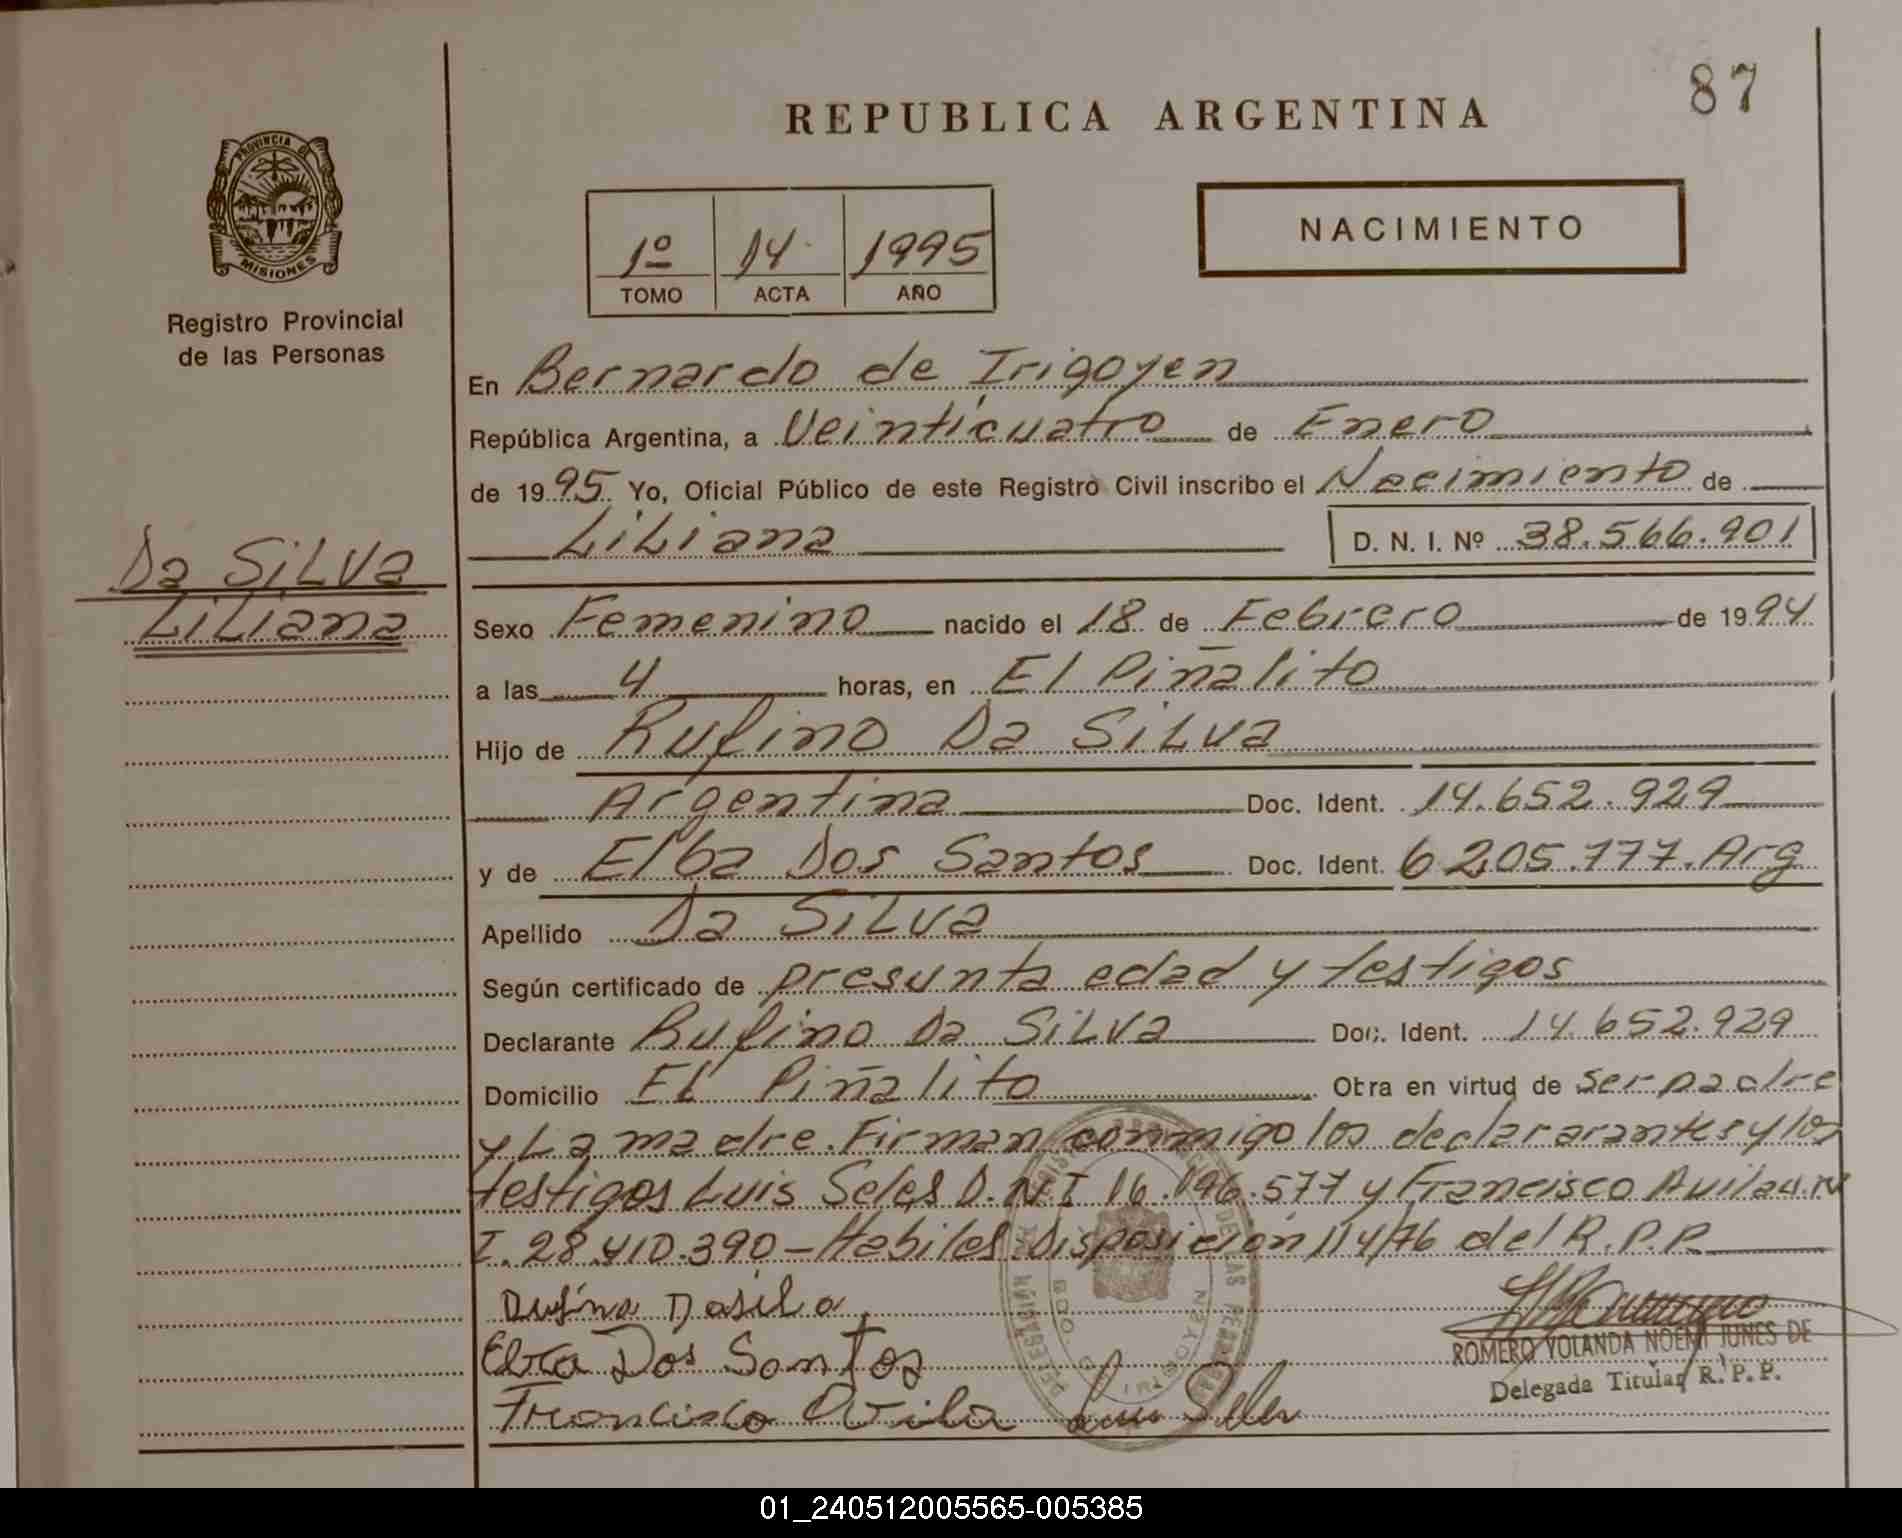 87
REPUBLICA ARGENTINA
PROVINCIA DE
MISIONES
Registro Provincial
de las Personas
1º 14 1995
TOMO ACTA AÑO
NACIMIENTO
En Bernardo de Irigoyen
República Argentina, a Veinticuatro de Enero
de 1995 Yo, Oficial Público de este Registro Civil inscribo el Nacimiento de
Liliana D. N. I. Nº 38.566.901
Da Silva
Liliana
Sexo Femenino nacido el 18 de Febrero de 1994
a las 4 horas, en El Piñalito
Hijo de Rufino Da Silva
Argentina Doc. Ident. 14.652.929
y de Elba Dos Santos Doc. Ident. 6 205.777. Arg
Apellido Da Silva
Según certificado de presunta edad y testigos
Declarante Rufino Da Silva Doc. Ident. 14.652.929
Domicilio El Piñalito Otra en virtud de ser padre
y La madre. Firman conmigo los declararantes y los
testigos Luis Seles D.N.I 16.196.577 y Francisco Avila D.N
I. 28.410.390 - Habiles Disposición 114/76 del R.P.P.
Dasilva
Elba Dos Santos
Francisco Avila Luis Seles
ROMERO YOLANDA NOEMI JUNES DE
Delegada Titular R. P. P.
01_240512005565-005385